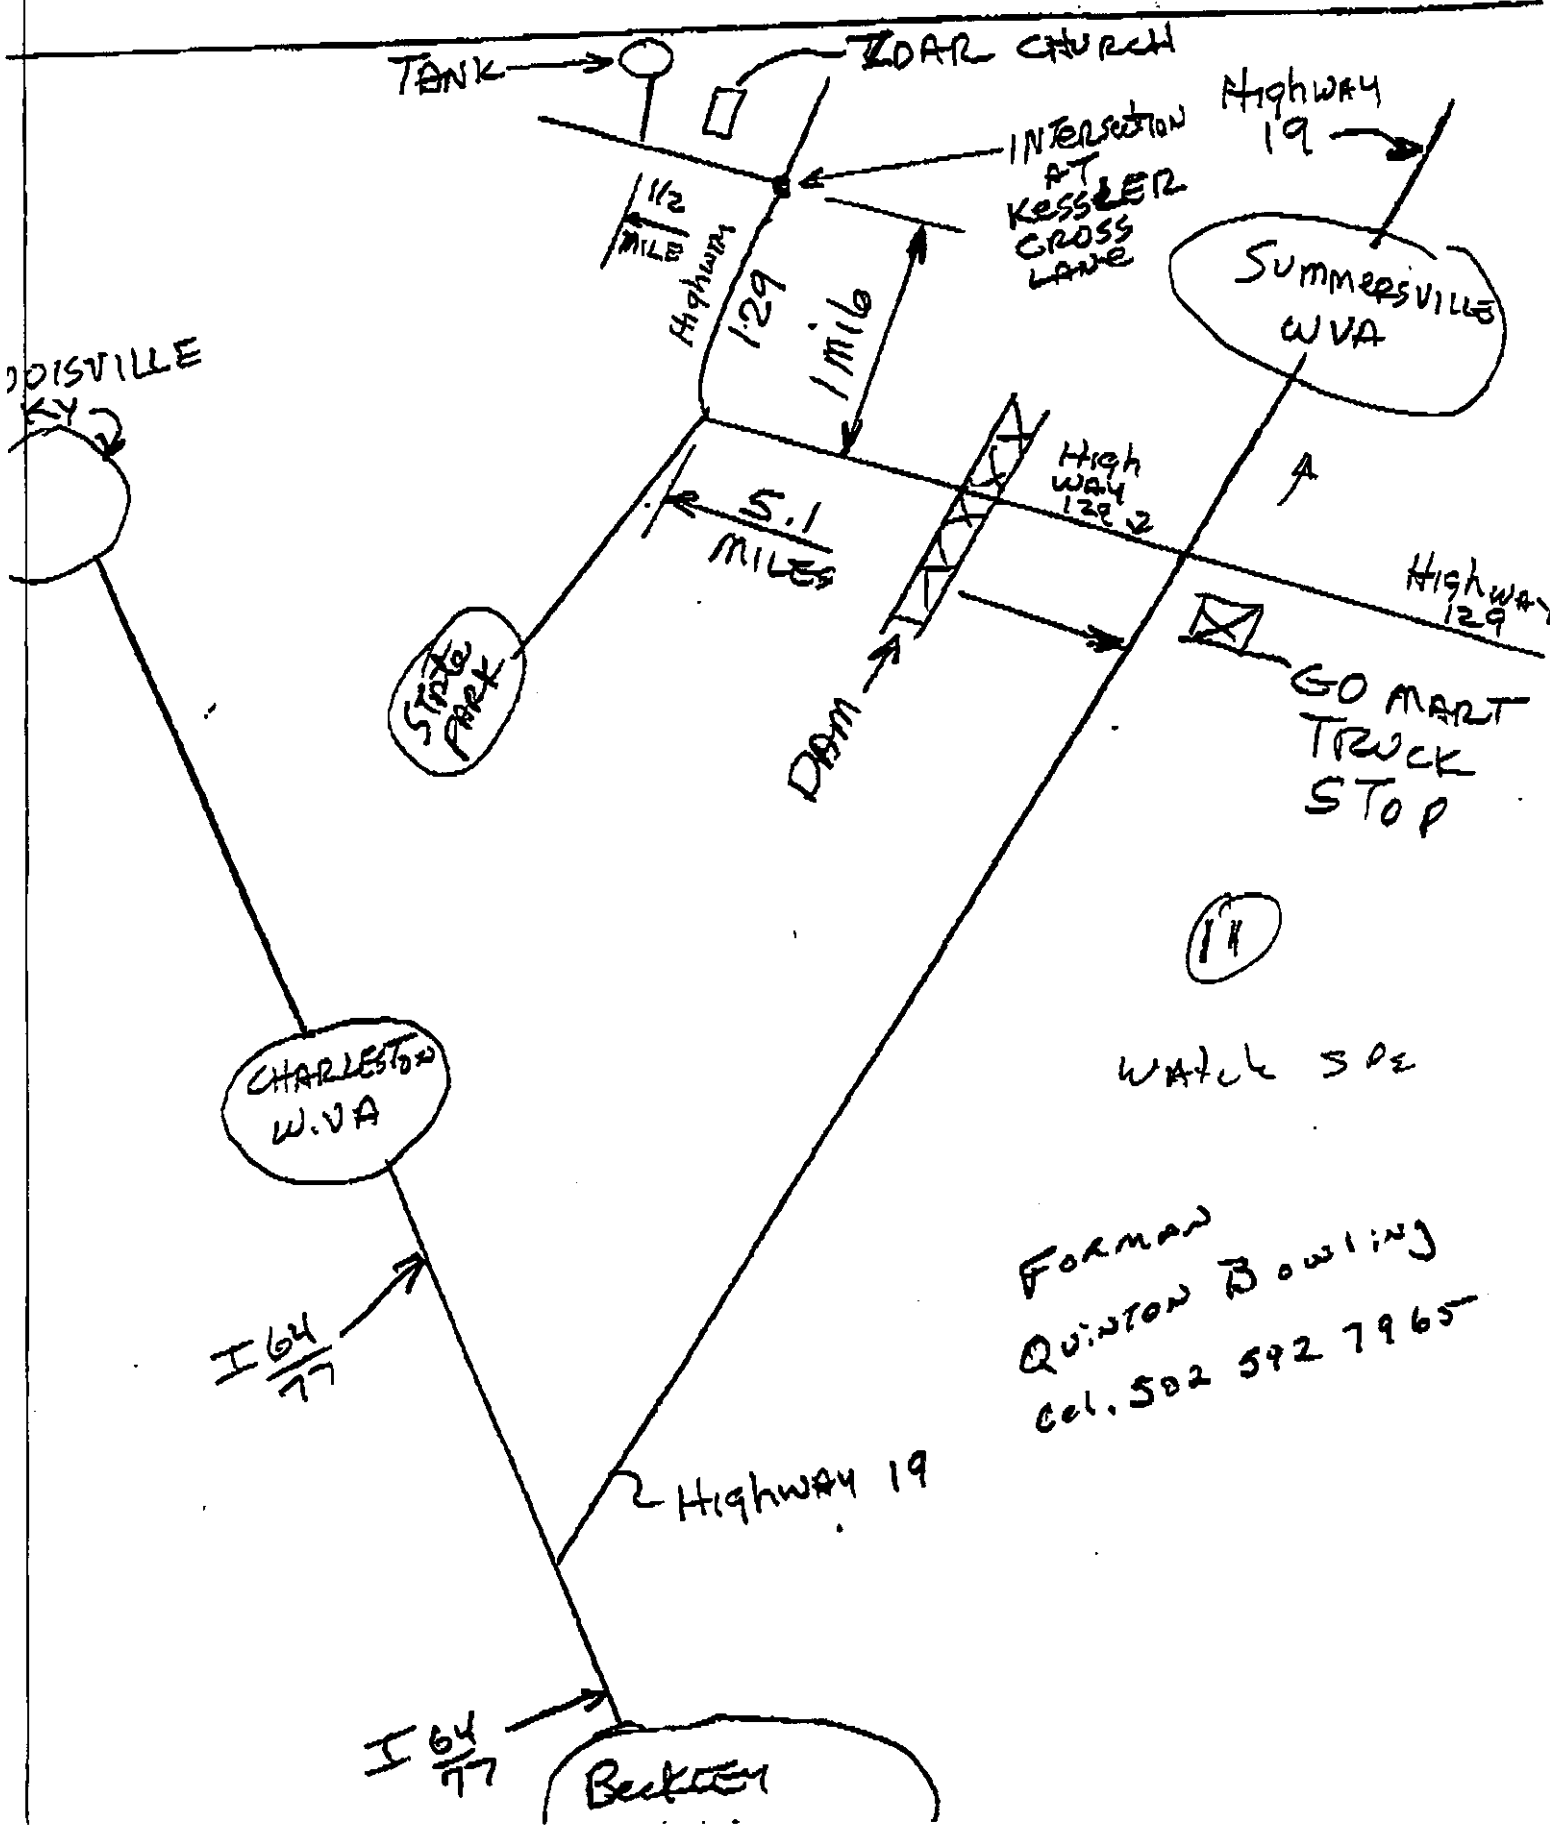 TANK
IDAR CHURCH
HighwAY
19
INTERSECTION
AT
KESSLER
CROSS
LANE
1/2
MILE
Highway
129
1 Mile
SUMMERSVILLE
W VA
OOISVILLE
KY
5.1
MILES
High
WAY
129
Highway
129
State
PARK
DAM
GO MART
TRUCK
STOP
11
CHARLESTON
W.VA
WAtch
FORMAN
QUINTON Bowling
Cel. 502 592 7965
I 64
77
HighwAY 19
I 64
77
BeckLEY